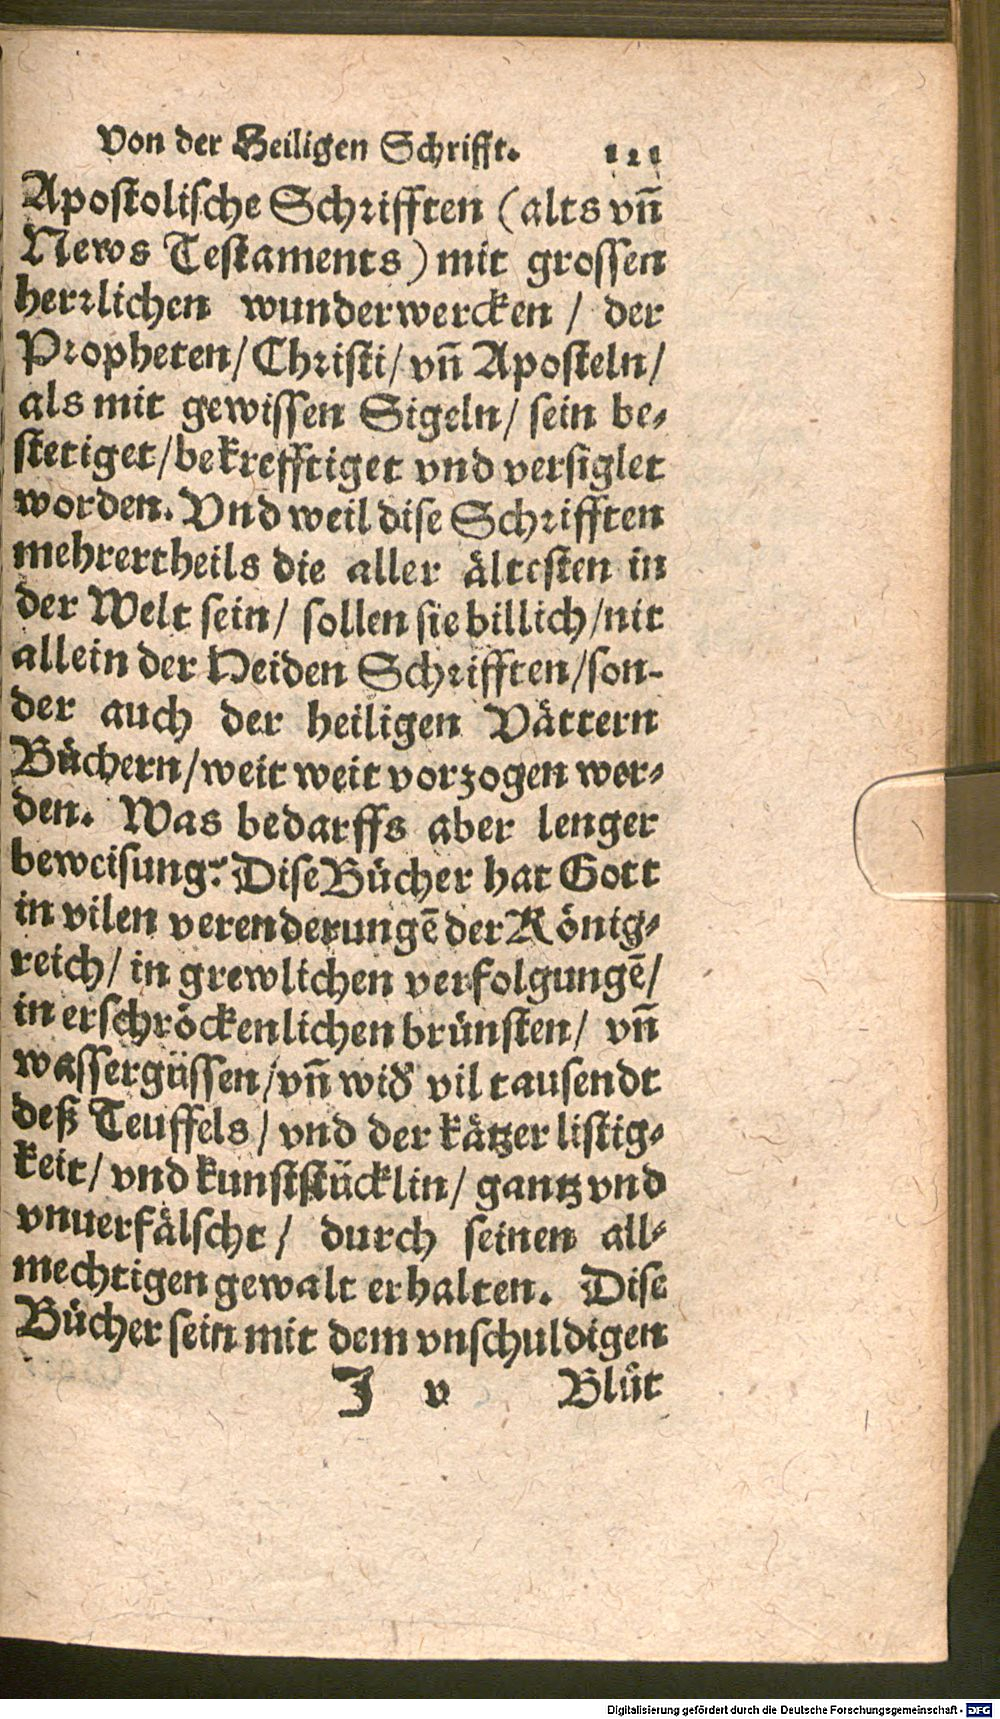 Von der Heiligen Schrifft. 121
Apostolische Schrifften (alts vñ
News Testaments) mit grossen
herrlichen wunderwercken / der
Propheten / Christi / vñ Aposteln /
als mit gewissen Sigeln / sein be-
stetiget / bekrefftiget vnd versiglet
worden. Vnd weil dise Schrifften
mehrertheils die aller ältesten in
der Welt sein / sollen sie billich / nit
allein der Heiden Schrifften / son-
der auch der heiligen Vättern
Büchern / weit weit vorzogen wer-
den. Was bedarffs aber lenger
beweisung? Dise Bücher hat Gott
in vilen verenderungē der König-
reich / in grewlichen verfolgungē /
in erschröckenlichen brünsten / vñ
wassergüssen / vñ wid̕ vil tausendt
deß Teuffels / vnd der kätzer listig-
keit / vnd kunststücklin / gantz vnd
vnuerfälscht / durch seinen all-
mechtigen gewalt erhalten. Dise
Bücher sein mit dem vnschuldigen
J v Blůt
Digitalisierung gefördert durch die Deutsche Forschungsgemeinschaft - DFG